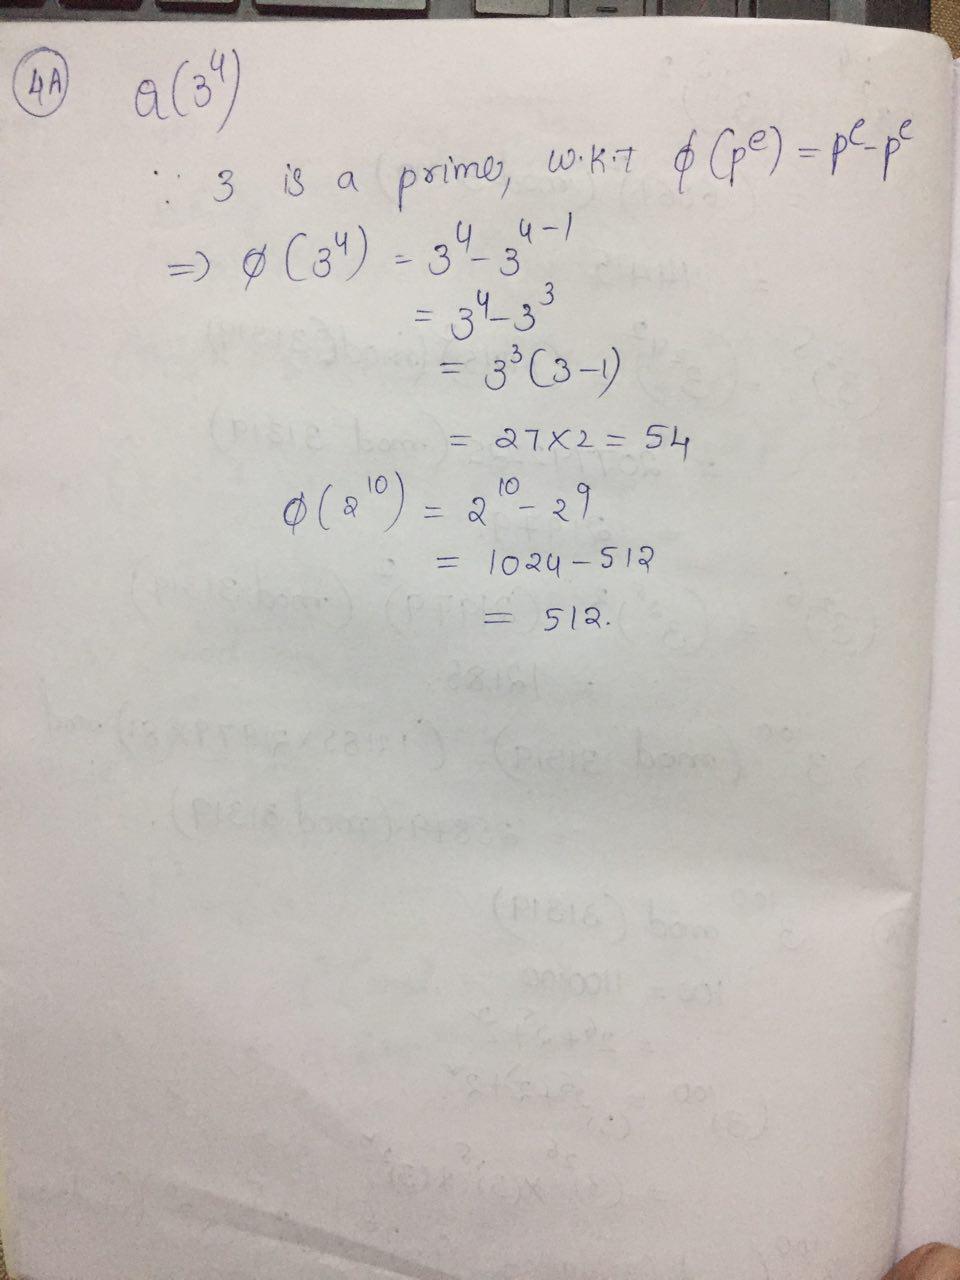 4A a(3^4)
∵ 3 is a prime, w.k.t ϕ(p^e) = p^e - p^e
=> ϕ(3^4) = 3^4 - 3^{4-1}
= 3^4 - 3^3
= 3^3(3-1)
= 27×2 = 54
ϕ(2^10) = 2^10 - 2^9
= 1024 - 512
= 512.